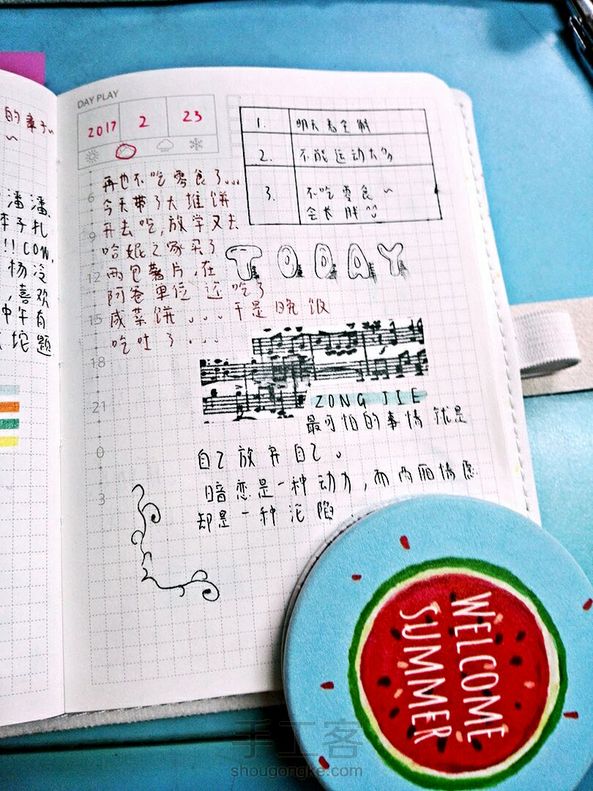 的
潘潘
李子扎
!! CON,
杨冷
,喜欢
中午有
题
DAY PLAY
2017 2 23
1. 明天看全解
2. 不能运动太多
3. 不吃零食~
会长胖
再也不吃零食了...
今天带了大推饼
干去吃,放学又去
哈妮之家买了
两包薯片,在
阿爸单位还吃了
咸菜饼...于是晚饭
吃吐了...
6
9
12
15
18
21
0
3
TODAY
ZONG JIE
最可怕的事情就是
自己放弃自己。
暗恋是一种动力,而两厢情愿
却是一种沦陷
WELCOME
SUMMER
手工客
shougongke.com